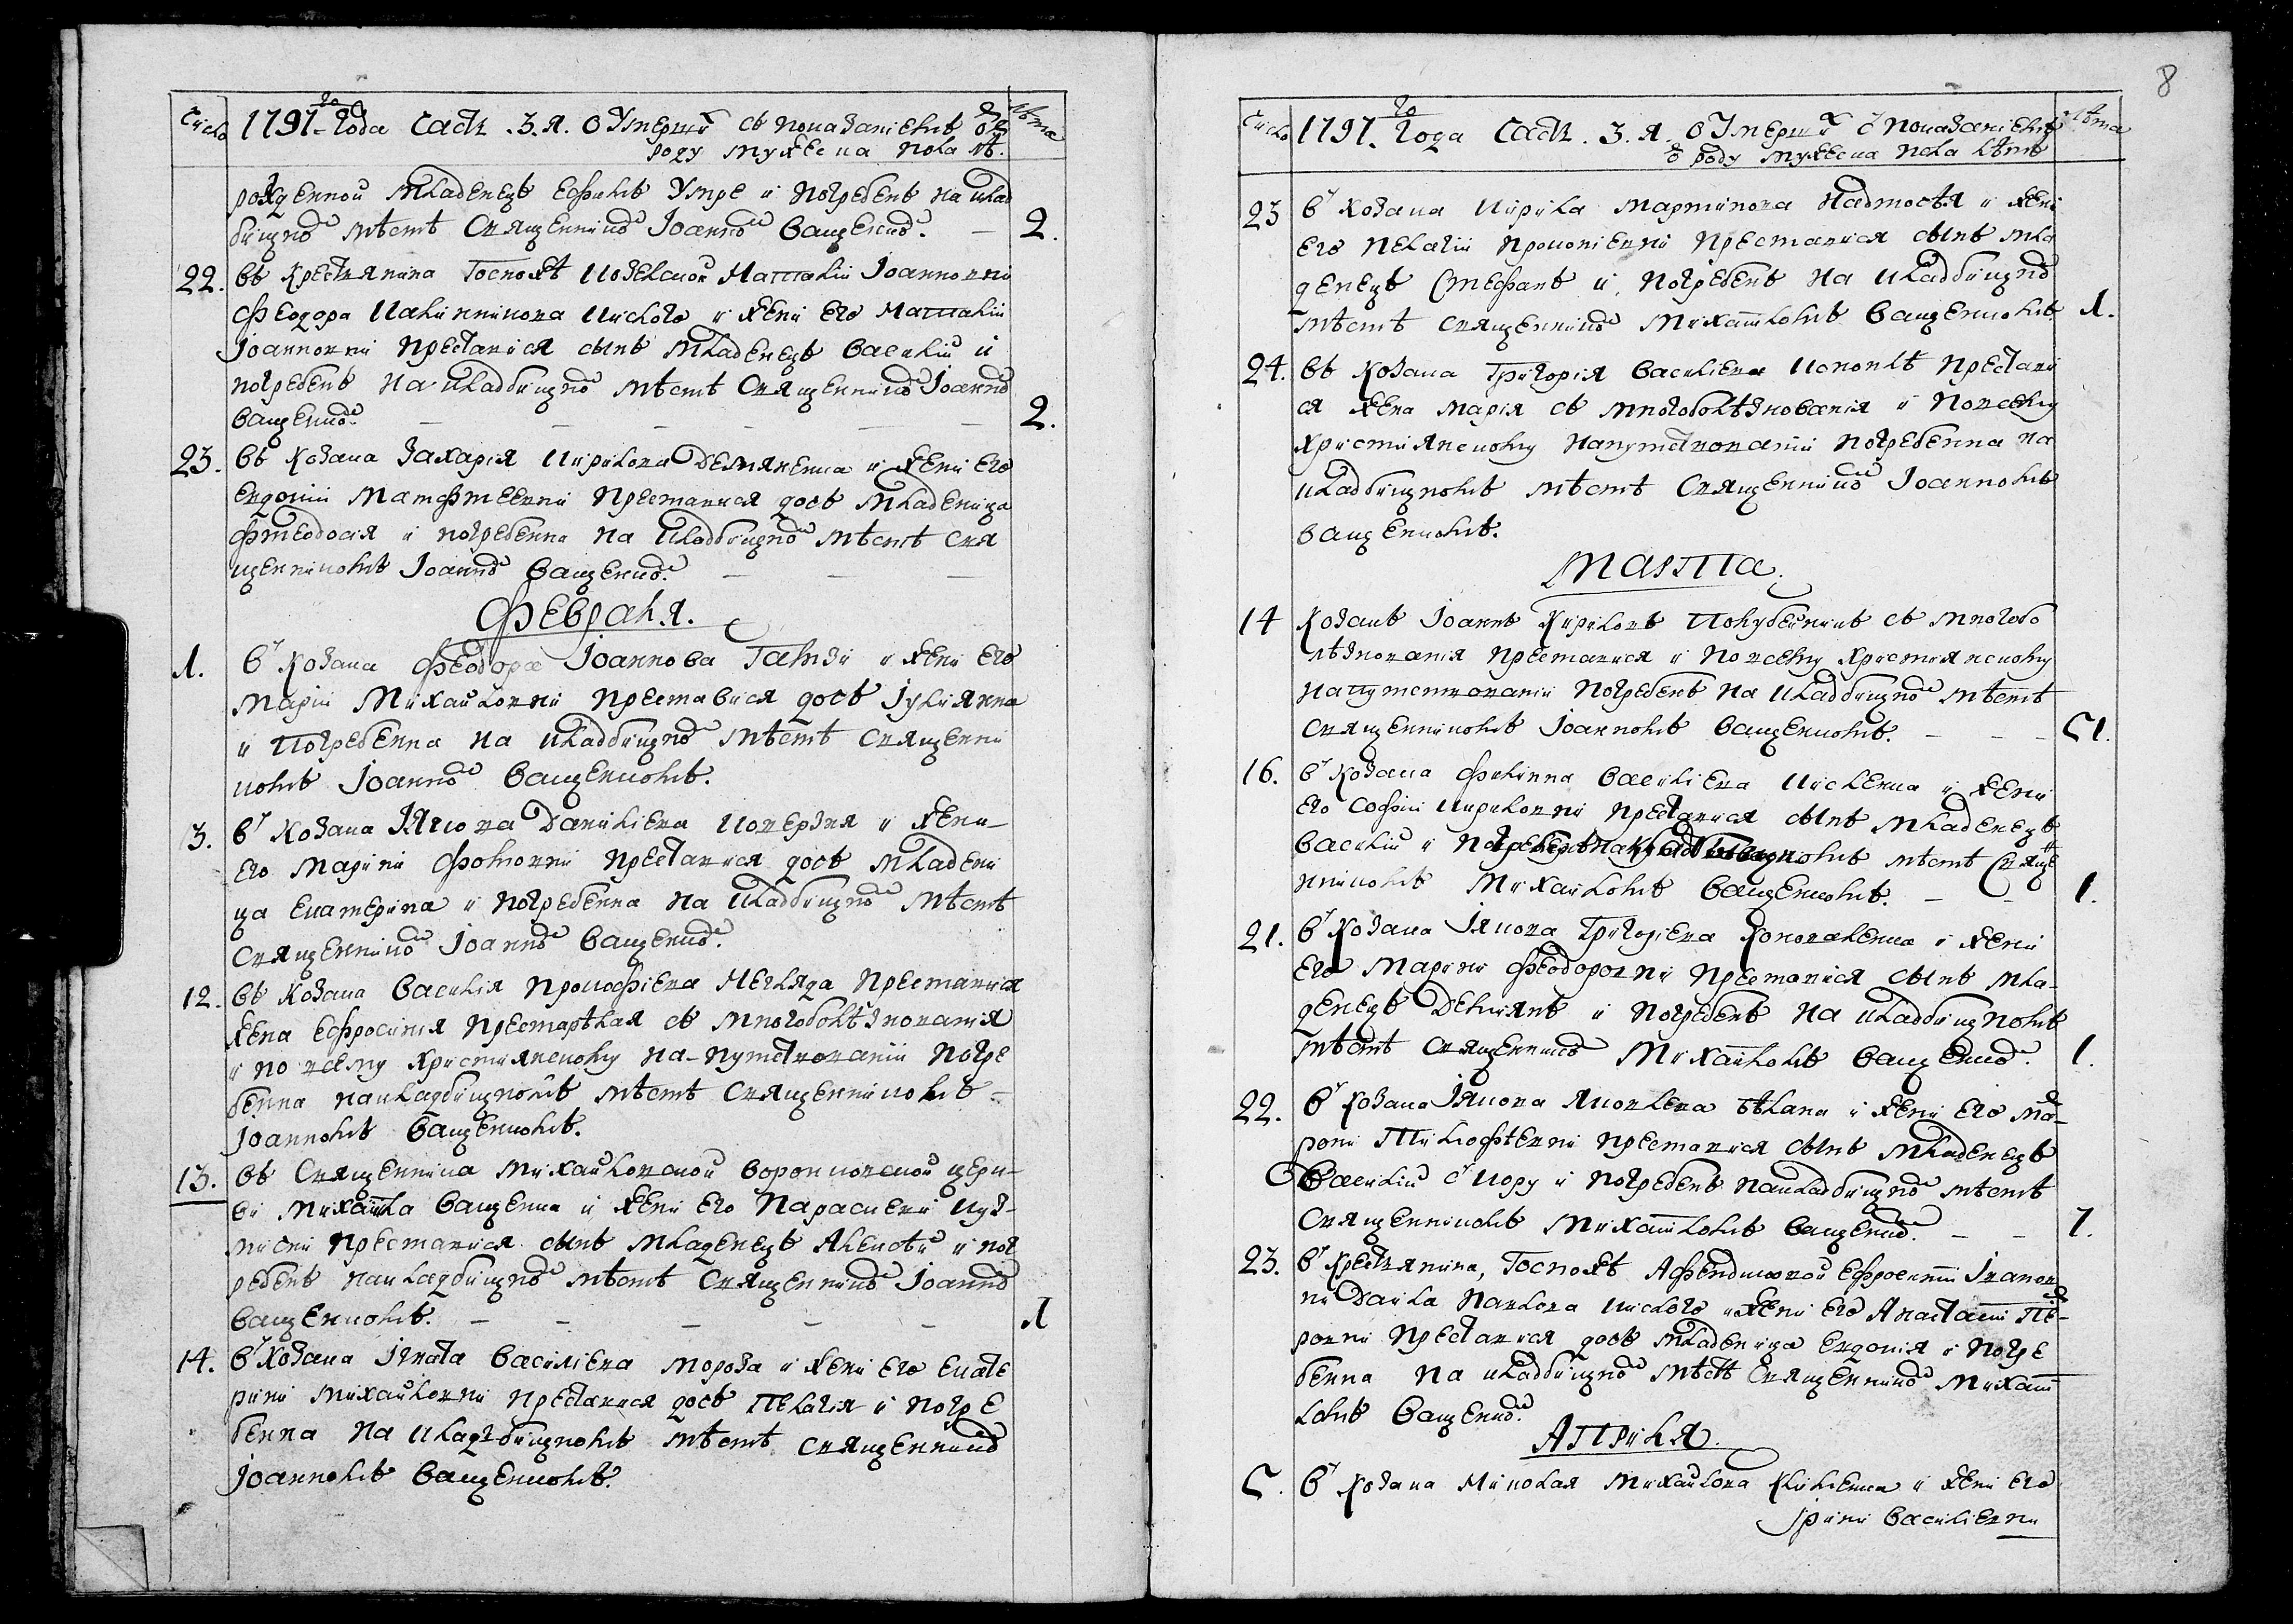 Число 1797го Года Часть .3.я. О Умерших съ показаниемъ отъ Лѣта
роду мужеска пола лѣ.
рожденной младенецъ Ефимъ Умре и погребенъ на клад
бищномъ мѣстѣ Священникомъ Иоанномъ Ващенкомъ. — 2.
22. въ Крестянина Госпожѣ Наталии Иоанновни
Феодора Калинникова и жени его Наталии
Иоанновни преставися сынъ младенецъ Василий и
погребенъ на кладбищномъ мѣстѣ Священникомъ Иоанномъ
Ващенкомъ. — — — — — — 2.
23. въ Козака Захария Кирилова Демяненка и жени его
Евдокии Матфтеевни преставися дочь младеница
Фтеодосия и погребенна на кладбищномъ мѣстѣ Свя
щенникомъ Иоанномъ Ващенкомъ. — — —
Февраля.
1. въ Козака Феодора Иоаннова Гамзи и жени его
Марии Михайловни преставися дочь Иулиянна
и погребенна на кладбищномъ мѣстѣ Священни
комъ Иоанномъ Ващенкомъ.
3. въ Козака Якова Даниліева Коверзня и жени
его Марини Фомовни преставися дочь младени
ца Екатерина и погребенна на кладбищномъ мѣстѣ
Священникомъ Иоанномъ Ващенкомъ.
12. въ Козака Василія Прокофіева Негляда преставися
жена Ефросиния престарѣлая съ многоболѣзнования
и по всему християнскому на-путствовании погре
бенна на кладбищномъ мѣстѣ Священникомъ
Иоанномъ Ващенкомъ.
13. въ Священника Михайловской Воронковской церк-
ви Михайла Ващенка и жени его Параскеви Куз-
мисни преставися сынъ младенецъ Алексѣй и пог
ребенъ на кладбищномъ мѣстѣ Священникомъ Иоанномъ
Ващенкомъ. — — — — — 1
14. въ Козака Игната Василіева Мороза и жени его Екате
рини Михайловни преставися дочь Пелагия и погре
бенна на кладбищномъ мѣстѣ Священникомъ
Иоанномъ Ващенкомъ.
8
Число 1797го Года Часть .3.я. О Умерших с показаниемъ Лѣта
о роду мужеска пола лѣтъ
23 въ Козака Кирила Мартинова и жени
его Пелагии Прокопиевни преставися сынъ мла
денецъ Стефанъ и погребенъ на кладбищномъ
мѣстѣ Священникомъ Михайломъ Ващенкомъ. 1.
24. въ Козака Григория Василиева престави
ся жена Мария съ многоболѣзнования и по всему
християнскому напутствовании погребенна на
кладбищномъ мѣстѣ Священникомъ Иоанномъ
Ващенкомъ.
Марта.
14 Козакъ Иоаннъ Кириловъ съ многобо
лѣзнования преставися и по всему християнскому
напутствовании погребенъ на кладбищномъ мѣстѣ
Священникомъ Иоанномъ Ващенкомъ. — — —
16. въ Козака Филиппа Василиева Кисленка и жени
его Софии Кириловни преставися сынъ младенецъ
Василий и погребенъ на кладбищномъ мѣстѣ Свяще
нникомъ Михайломъ Ващенкомъ. — — 1.
21. въ Козака Якова Григориева Коноваленка и жени
его Марини Феодоровни преставися сынъ мла-
денецъ Демиянъ и погребенъ на кладбищномъ
мѣстѣ Священникомъ Михайломъ Ващенкомъ. 1.
22. въ Козака Якова Яковлева Бѣлана и жени его Мат
рони Тимофѣевни преставися сынъ младенецъ
Василий с кору и погребенъ на кладбищномъ мѣстѣ
Священникомъ Михайломъ Ващенкомъ. — — 1.
23. въ Крестянина, Госпожѣ Афендиковой Ефросинии Иванов
ни Даніла Павлова и жени его Анастасии Пет-
ровни преставися дочь младеница Евдокия и погре
бенна на кладбищномъ мѣстѣ Священникомъ Михай
ломъ Ващенкомъ.
Априля.
5. въ Козака Николая Михайлова Клименка и жени его
Ирини Василиевни